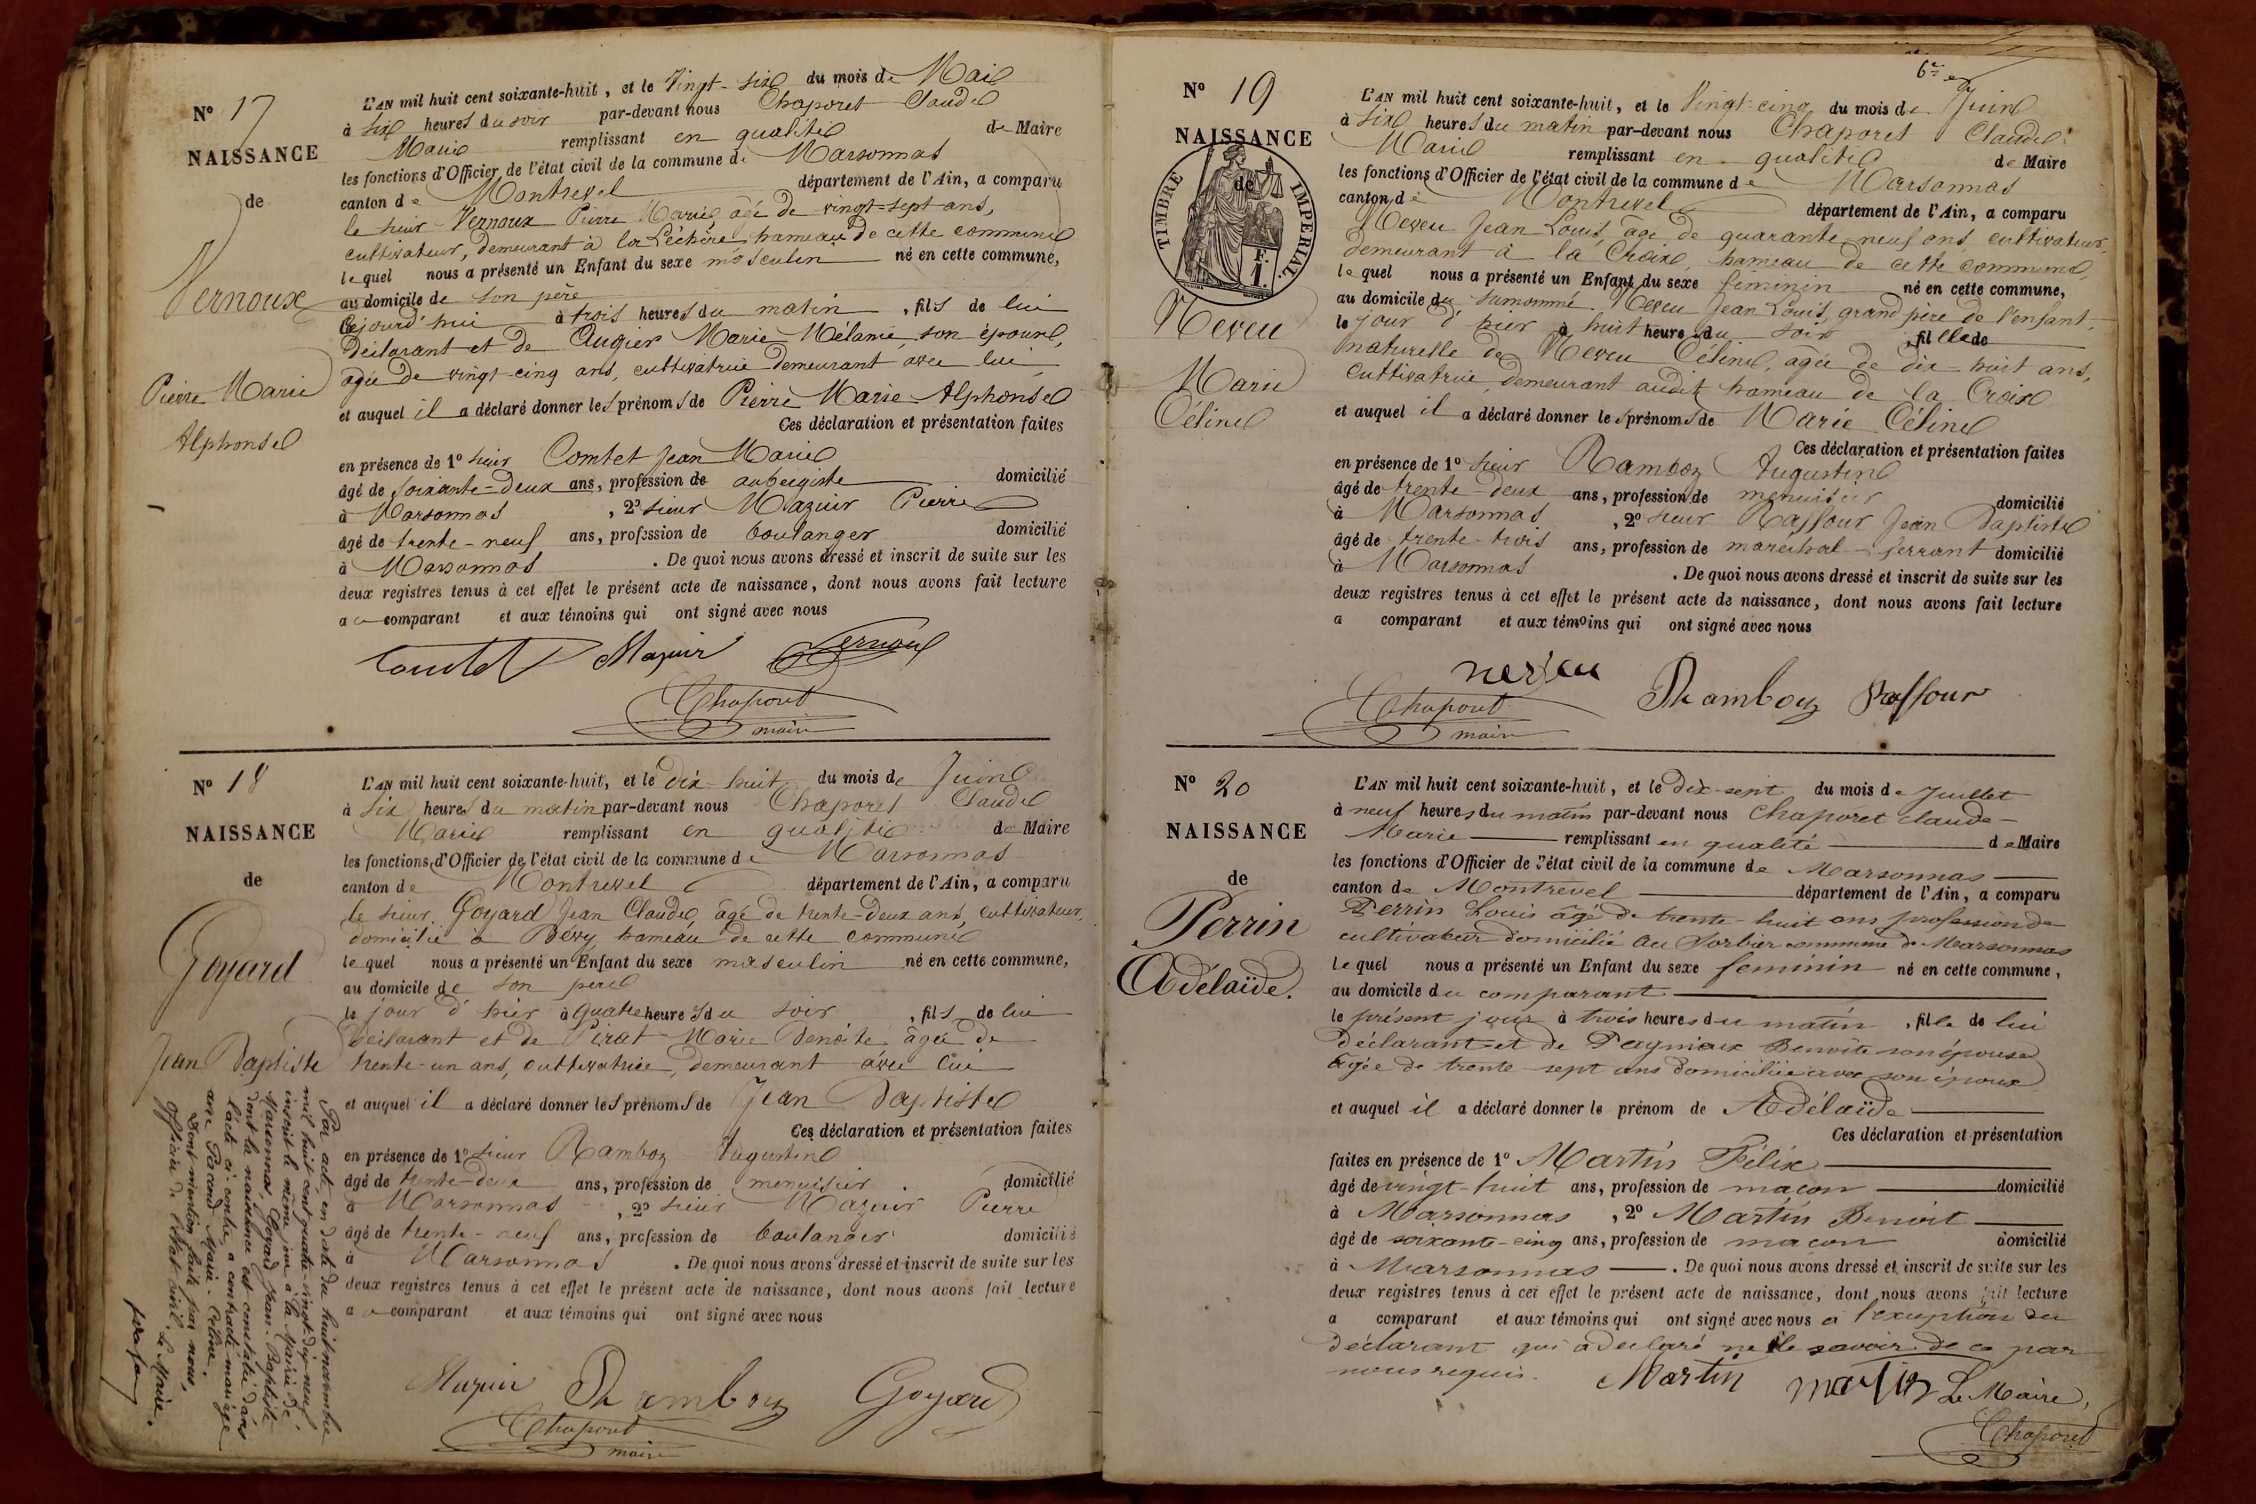 N° 17
NAISSANCE
de
Vernoux
Pierre Marie
Alphonse
L'AN mil huit cent soixante-huit, et le Vingt-six du mois de Mai
à six heures du soir par-devant nous Chaporet Claude
Marie remplissant en qualité de Maire
les fonctions d'Officier de l'état civil de la commune de Marsonnas
canton de Montrevel département de l'Ain, a comparu
le sieur Vernoux Pierre Marie, âgé de vingt-sept ans,
cultivateur, demeurant à la Léchère, hameau de cette commune
lequel nous a présenté un Enfant du sexe masculin né en cette commune,
au domicile de son père
cejourd'hui à trois heures du matin, fils de lui
Déclarant et de Augier Marie Mélanie, son épouse,
agée de vingt-cinq ans, cultivatrice demeurant avec lui
et auquel il a déclaré donner les prénoms de Pierre Marie Alphonse
Ces déclaration et présentation faites
en présence de 1° sieur Comtet Jean Marie
âgé de soixante-deux ans, profession de aubergiste domicilié
à Marsonnas, 2° sieur Mazuir Pierre
âgé de trente-neuf ans, profession de boulanger domicilié
à Marsonnas. De quoi nous avons dressé et inscrit de suite sur les
deux registres tenus à cet effet le présent acte de naissance, dont nous avons fait lecture
au comparant et aux témoins qui ont signé avec nous
Comtet Mazuir Vernoux
Chaporet
maire
N° 18
NAISSANCE
de
Goyard
Jean Baptiste
L'AN mil huit cent soixante-huit, et le Dix-huit du mois de Juin
à six heures du matin par-devant nous Chaporet Claude
Marie remplissant en qualité de Maire
les fonctions d'Officier de l'état civil de la commune de Marsonnas
canton de Montrevel département de l'Ain, a comparu
le sieur Goyard Jean Claude, âgé de trente-deux ans, cultivateur,
domicilié à Bévy hameau de cette commune
lequel nous a présenté un Enfant du sexe masculin né en cette commune,
au domicile de son père
le jour d'hier à quatre heures du soir, fils de lui
Déclarant et de Pirat Marie Benoîte âgée de
trente-un ans, cultivatrice, demeurant avec lui
et auquel il a déclaré donner les prénoms de Jean Baptiste
Ces déclaration et présentation faites
en présence de 1° sieur Ramboz Augustin
âgé de trente-deux ans, profession de menuisier domicilié
à Marsonnas, 2° sieur Mazuir Pierre
âgé de trente-neuf ans, profession de boulanger domicilié
à Marsonnas. De quoi nous avons dressé et inscrit de suite sur les
deux registres tenus à cet effet le présent acte de naissance, dont nous avons fait lecture
au comparant et aux témoins qui ont signé avec nous
Mazuir Ramboz Goyard
Chaporet
maire
Par acte en date du huit novembre
mil huit cent quatre-vingt-dix-neuf,
inscrit le même jour à la Mairie de
Marsonnas, Goyard Jean-Baptiste
dont la naissance est constatée dans
l'acte ci-contre, a contracté mariage
avec Marie-Céline.
Dont mention faite par nous,
officier de l'état civil.
Le Maire.
N° 19
NAISSANCE
de
TIMBRE IMPERIAL
F.
1.
Neveu
Marie
Céline
6e
L'AN mil huit cent soixante-huit, et le Vingt-cinq du mois de Juin
à six heures du matin par-devant nous Chaporet Claude
Marie remplissant en qualité de Maire
les fonctions d'Officier de l'état civil de la commune de Marsonnas
canton de Montrevel département de l'Ain, a comparu
Neveu Jean Louis, âgé de quarante-neuf ans, cultivateur,
demeurant à la Croix, hameau de cette commune,
lequel nous a présenté un Enfant du sexe féminin né en cette commune,
au domicile du surnommé Neveu Jean Louis, grand père de l'enfant,
le jour d'hier à huit heures du soir, fille de
naturelle de Neveu Céline, agée de dix-huit ans,
cultivatrice, demeurant audit hameau de la Croix
et auquel il a déclaré donner les prénoms de Marie Céline
Ces déclaration et présentation faites
en présence de 1° sieur Ramboz Augustin
âgé de trente-deux ans, profession de menuisier domicilié
à Marsonnas, 2° sieur Raffour Jean Baptiste
âgé de trente-trois ans, profession de maréchal-ferrant domicilié
à Marsonnas. De quoi nous avons dressé et inscrit de suite sur les
deux registres tenus à cet effet le présent acte de naissance, dont nous avons fait lecture
a comparant et aux témoins qui ont signé avec nous
neveu Ramboz Raffour
Chaporet
maire
N° 20
NAISSANCE
de
Perrin
Adélaïde.
L'AN mil huit cent soixante-huit, et le Dix-sept du mois de Juillet
à neuf heures du matin par-devant nous Chaporet Claude
Marie remplissant en qualité de Maire
les fonctions d'Officier de l'état civil de la commune de Marsonnas
canton de Montrevel département de l'Ain, a comparu
Perrin Louis âgé de trente-huit ans profession de
cultivateur domicilié au Sorbier commune de Marsonnas
lequel nous a présenté un Enfant du sexe féminin né en cette commune,
au domicile du comparant
le présent jour à trois heures du matin, fille de lui
déclarant et de Pagnieux Benoîte son épouse
âgée de trente-sept ans domiciliée avec son époux
et auquel il a déclaré donner le prénom de Adélaïde
Ces déclaration et présentation
faites en présence de 1° Martin Félix
âgé de vingt-huit ans, profession de maçon domicilié
à Marsonnas, 2° Martin Benoit
âgé de soixante-cinq ans, profession de maçon domicilié
à Marsonnas. De quoi nous avons dressé et inscrit de suite sur les
deux registres tenus à cet effet le présent acte de naissance, dont nous avons fait lecture
a comparant et aux témoins qui ont signé avec nous à l'exception du
déclarant qui a déclaré ne le savoir de ce par
nous requis.
Martin martin Le Maire,
Chaporet